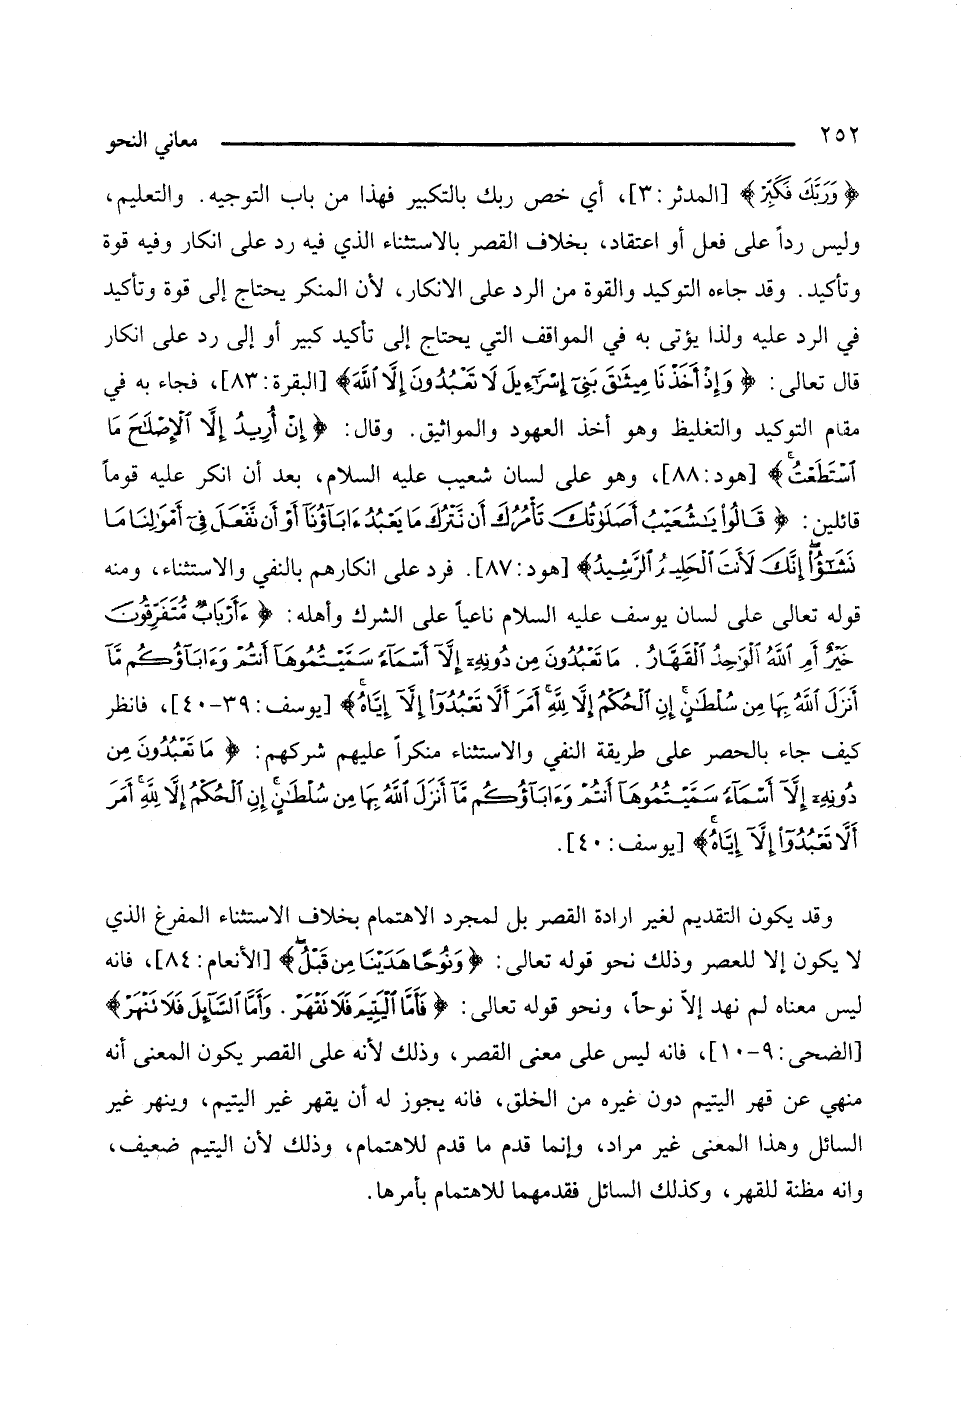 ٢٥٢ معاني النحو
﴿ وَرَبَّكَ فَكَبِّرْ ﴾ [المدثر: ٣]، أي خص ربك بالتكبير فهذا من باب التوجيه. والتعليم،
وليس رداً على فعل أو اعتقاد، بخلاف القصر بالاستثناء الذي فيه رد على انكار وفيه قوة
وتأكيد. وقد جاءه التوكيد والقوة من الرد على الانكار، لأن المنكر يحتاج إلى قوة وتأكيد
في الرد عليه ولذا يؤتى به في المواقف التي يحتاج إلى تأكيد كبير أو إلى رد على انكار
قال تعالى: ﴿ وَإِذْ أَخَذْنَا مِيثَٰقَ بَنِىٓ إِسْرَٰٓءِيلَ لَا تَعْبُدُونَ إِلَّا ٱللَّهَ﴾ [البقرة: ٨٣]، فجاء به في
مقام التوكيد والتغليظ وهو أخذ العهود والمواثيق. وقال: ﴿ إِنْ أُرِيدُ إِلَّا ٱلْإِصْلَٰحَ مَا
ٱسْتَطَعْتُۚ ﴾ [هود: ٨٨]، وهو على لسان شعيب عليه السلام، بعد أن انكر عليه قوماً
قائلين: ﴿ قَالُوا۟ يَٰشُعَيْبُ أَصَلَوٰتُكَ تَأْمُرُكَ أَن نَّتْرُكَ مَا يَعْبُدُ ءَابَآؤُنَآ أَوْ أَن نَّفْعَلَ فِىٓ أَمْوَٰلِنَا مَا
نَشَٰٓؤُا۟ۖ إِنَّكَ لَأَنتَ ٱلْحَلِيمُ ٱلرَّشِيدُ﴾ [هود: ٨٧]. فرد على انكارهم بالنفي والاستثناء، ومنه
قوله تعالى على لسان يوسف عليه السلام ناعياً على الشرك وأهله: ﴿ ءَأَرْبَابٌ مُّتَفَرِّقُونَ
خَيْرٌ أَمِ ٱللَّهُ ٱلْوَٰحِدُ ٱلْقَهَّارُ . مَا تَعْبُدُونَ مِن دُونِهِۦٓ إِلَّآ أَسْمَآءً سَمَّيْتُمُوهَآ أَنتُمْ وَءَابَآؤُكُم مَّآ
أَنزَلَ ٱللَّهُ بِهَا مِن سُلْطَٰنٍۚ إِنِ ٱلْحُكْمُ إِلَّا لِلَّهِۚ أَمَرَ أَلَّا تَعْبُدُوٓا۟ إِلَّآ إِيَّاهُۚ﴾ [يوسف: ٣٩-٤٠]، فانظر
كيف جاء بالحصر على طريقة النفي والاستثناء منكراً عليهم شركهم: ﴿ مَا تَعْبُدُونَ مِن
دُونِهِۦٓ إِلَّآ أَسْمَآءً سَمَّيْتُمُوهَآ أَنتُمْ وَءَابَآؤُكُم مَّآ أَنزَلَ ٱللَّهُ بِهَا مِن سُلْطَٰنٍۚ إِنِ ٱلْحُكْمُ إِلَّا لِلَّهِۚ أَمَرَ
أَلَّا تَعْبُدُوٓا۟ إِلَّآ إِيَّاهُۚ﴾ [يوسف: ٤٠].
وقد يكون التقديم لغير ارادة القصر بل لمجرد الاهتمام بخلاف الاستثناء المفرغ الذي
لا يكون إلا للعصر وذلك نحو قوله تعالى: ﴿ وَنُوحًا هَدَيْنَا مِن قَبْلُۖ ﴾ [الأنعام: ٨٤]، فانه
ليس معناه لم نهد إلاّ نوحاً، ونحو قوله تعالى: ﴿ فَأَمَّا ٱلْيَتِيمَ فَلَا تَقْهَرْ . وَأَمَّا ٱلسَّآئِلَ فَلَا تَنْهَرْ﴾
[الضحى: ٩-١٠]، فانه ليس على معنى القصر، وذلك لأنه على القصر يكون المعنى أنه
منهي عن قهر اليتيم دون غيره من الخلق، فانه يجوز له أن يقهر غير اليتيم، وينهر غير
السائل وهذا المعنى غير مراد، وإنما قدم ما قدم للاهتمام، وذلك لأن اليتيم ضعيف،
وانه مظنة للقهر، وكذلك السائل فقدمهما للاهتمام بأمرها.